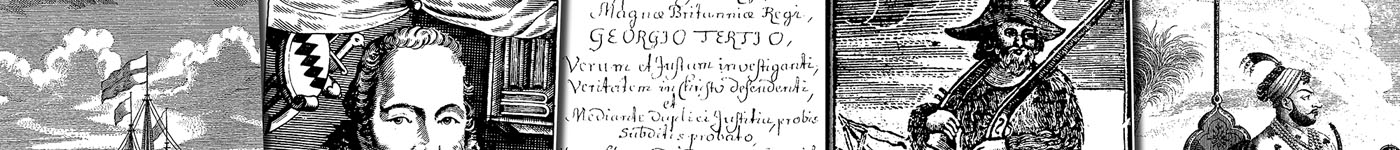 Magnæ Britanniæ Regi,
GEORGIO TERTIO,
Verum et Justum investiganti,
Veritatem in Christo defendenti,
et
Mediante duplici Justitia, probis
Subditis probato,